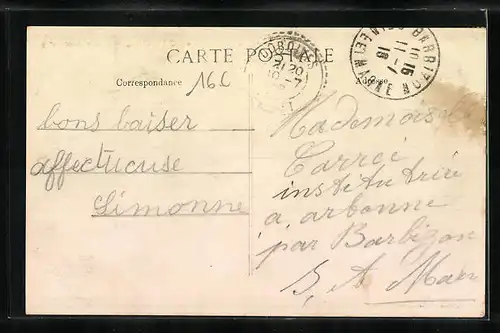 CARTE POSTALE
Correspondance
Adresse
16C
bons baiser
affectueuse
Simonne
Mademoiselle
Carrée
institutrice
a arbonne
par Barbizon
S. et Marn
BARBIZON
SEINE ET MARNE